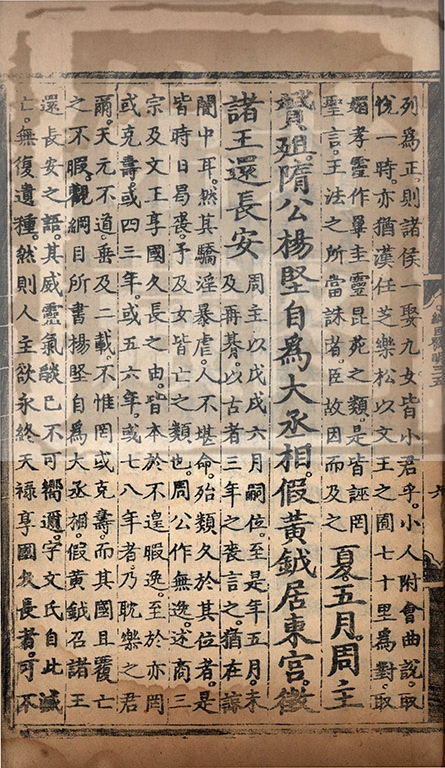 列爲正。則諸侯一娶九女皆小君乎。小人附會曲說。取
悅一時。亦猶漢任芝樂松以文王之囿七十里爲對。取
媚孝靈作罼圭靈昆苑之類。是皆誣罔
聖言。王法之所當誅者。臣故因而及之
夏。五月。周主
贇殂。隋公楊堅自爲大丞相。假黃鉞居東宮。徵
諸王還長安
周主以戊戌六月嗣位。至是年五月。未
及再朞。以古者三年之喪言之。猶在諒
闇中耳。然其驕淫暴虐。人不堪命。殆類久於其位者。是
皆時日曷喪予及女皆亡之類也。周公作無逸。述商三
宗及文王享國久長之由。皆本於不遑暇逸。至於亦罔
或克壽。或四三年。或五六年。或七八年者。乃耽樂之君
爾。天元不道。及二載。不惟罔或克壽。而其國且覆亡
之不暇。觀綱目所書楊堅自爲大丞相。假黃鉞召諸王
還長安之語。其威靈氣燄已不可嚮邇。宇文氏自此滅
亡。無復遺種。然則人主欲永終天祿享國長者。可不